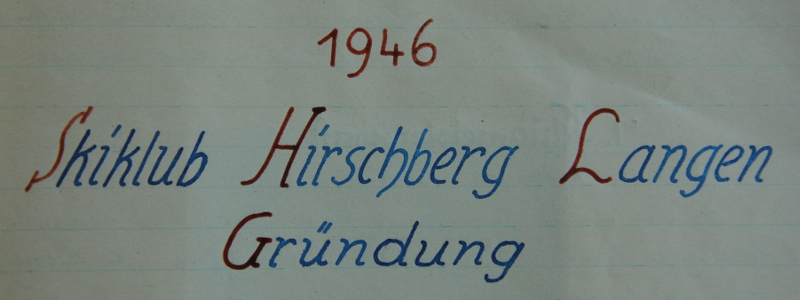 1946
Skiklub Hirschberg Langen
Gründung